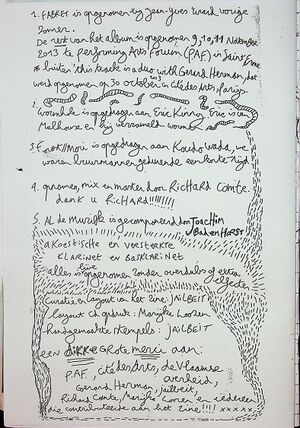 1. FABRET is opgenomen bij Jean-Yves Evrard vorige
Zomer.
De rest van het album is opgenomen 9, 10, 11 November
2013 te performing Arts Forum (P.A.F.) in Saint Erme
* buiten "this track is a duo with Gerard Herman, dat
werd opgenomen op 30 october in cité des Arts, Parijs
2. is opgedragen aan Eric Kinny, Eric is van
Malhouse en hij verzameld wormen
3. is opgedragen aan Koudo wada, we
waren buurmannen gedurende een korte tijd
4. opnamen, mix en master door RICHARD COMTE.
dank u RICHARD!!!!!!!!
5. AL de Muziek is gecomponeerd door JOACHIM
BADENHORST
aKoestische en versterkte
KLARINET en BASKLARINET
alles is live opgenomen zonder overdubs of extra
effecten
Curatie en layout van het zine: JAILBEIT
Layout cd gedicht: Marijke Loozen
handgemaakte stempels: JAILBEIT
een DIKKE GROTE merci aan:
P.A.F., cité des Arts, de Vlaamse
overheid,
Gerard Herman, Jailbeit,
Richard Comte, Marijke Loozen en iedereen
die contribueerde aan het zine!!!! xxxxx